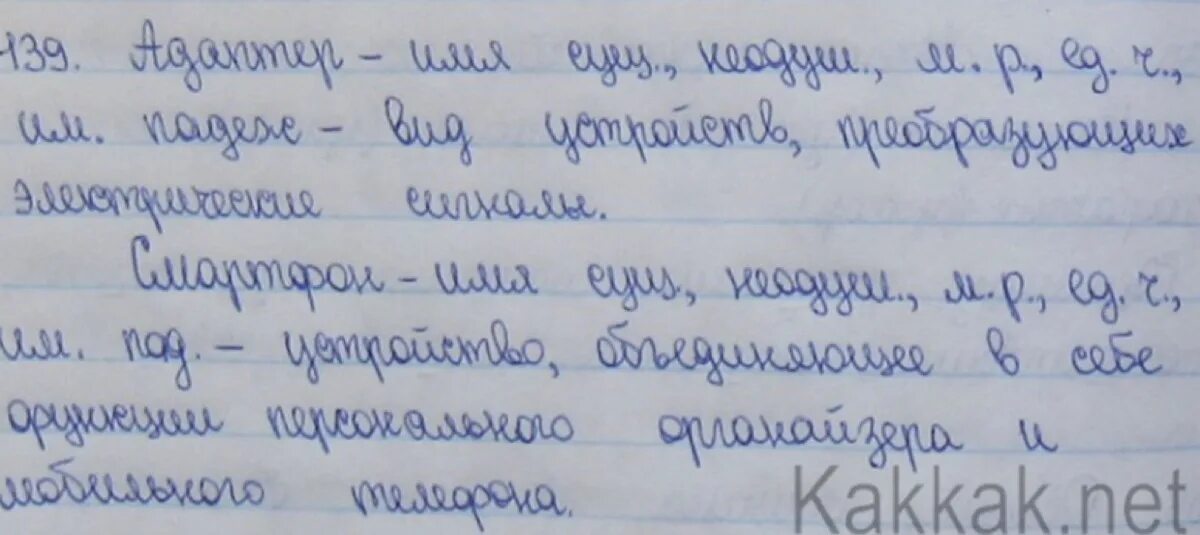 139. Адаптер – имя сущ., неодуш., м. р., ед. ч.,
им. падеж – вид устройств, преобразующих
электрические сигналы.
Смартфон – имя сущ., неодуш., м. р., ед. ч.,
им. пад. – устройство, объединяющее в себе
функции персонального органайзера и
мобильного телефона.
Kakkak.net